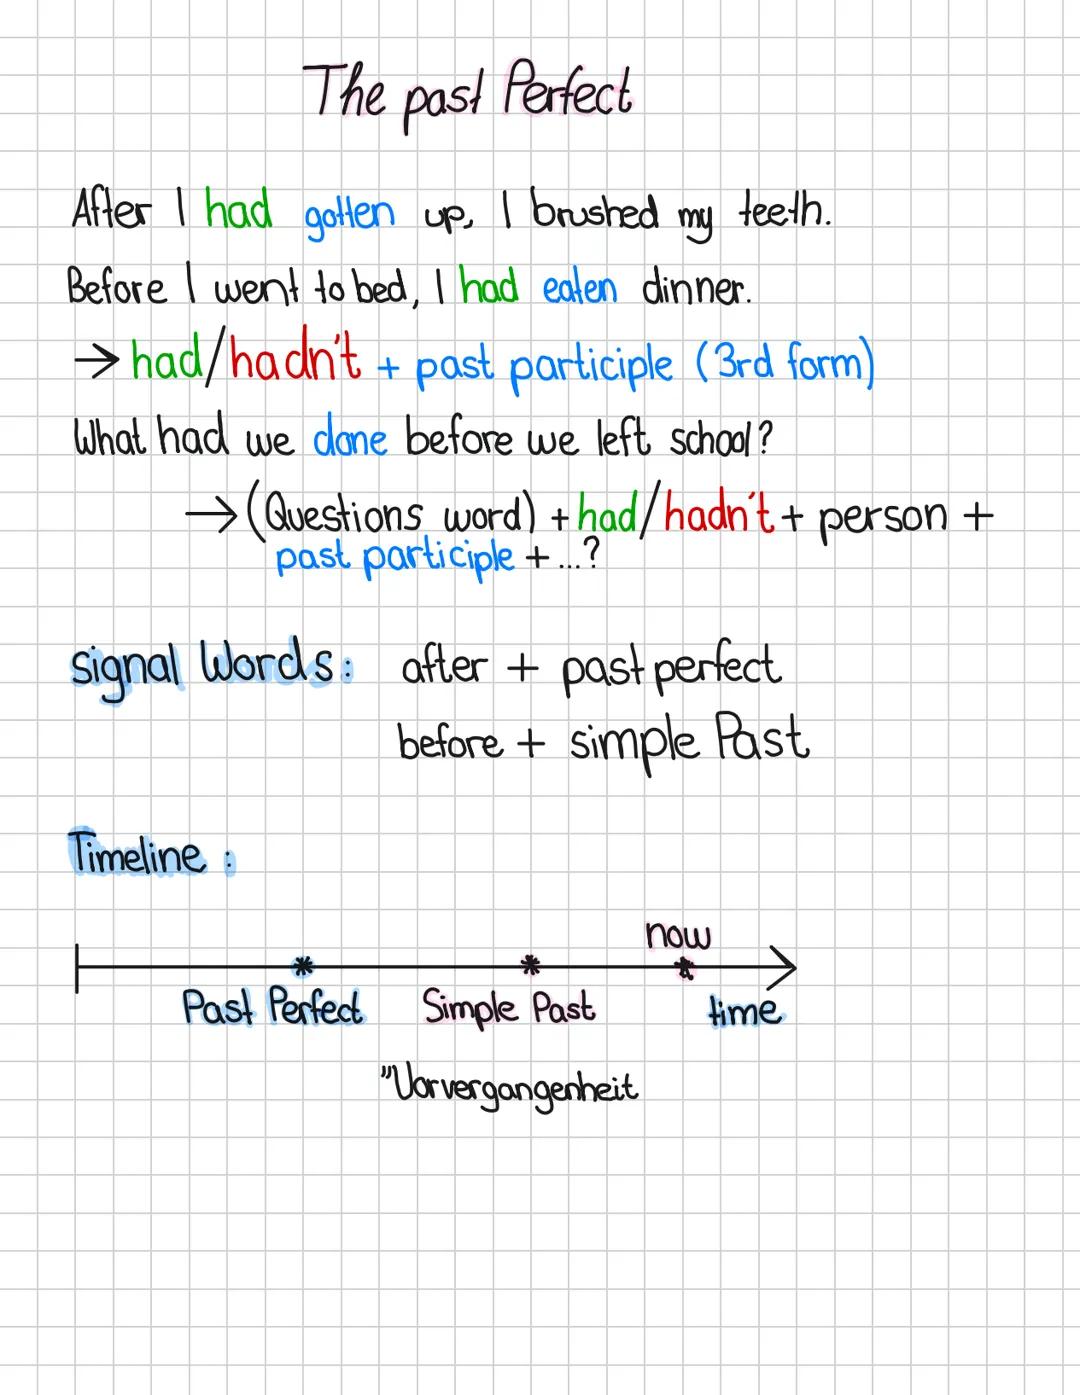 The past Perfect
After I had gotten up, I brushed my teeth.
Before I went to bed, I had eaten dinner.
→ had/hadn't + past participle (3rd form)
What had we done before we left school?
→ (Questions word) + had/hadn't + person +
past participle + ...?
signal Words: after + past perfect
before + simple Past
Timeline:
now
Past Perfect Simple Past time
"Vorvergangenheit